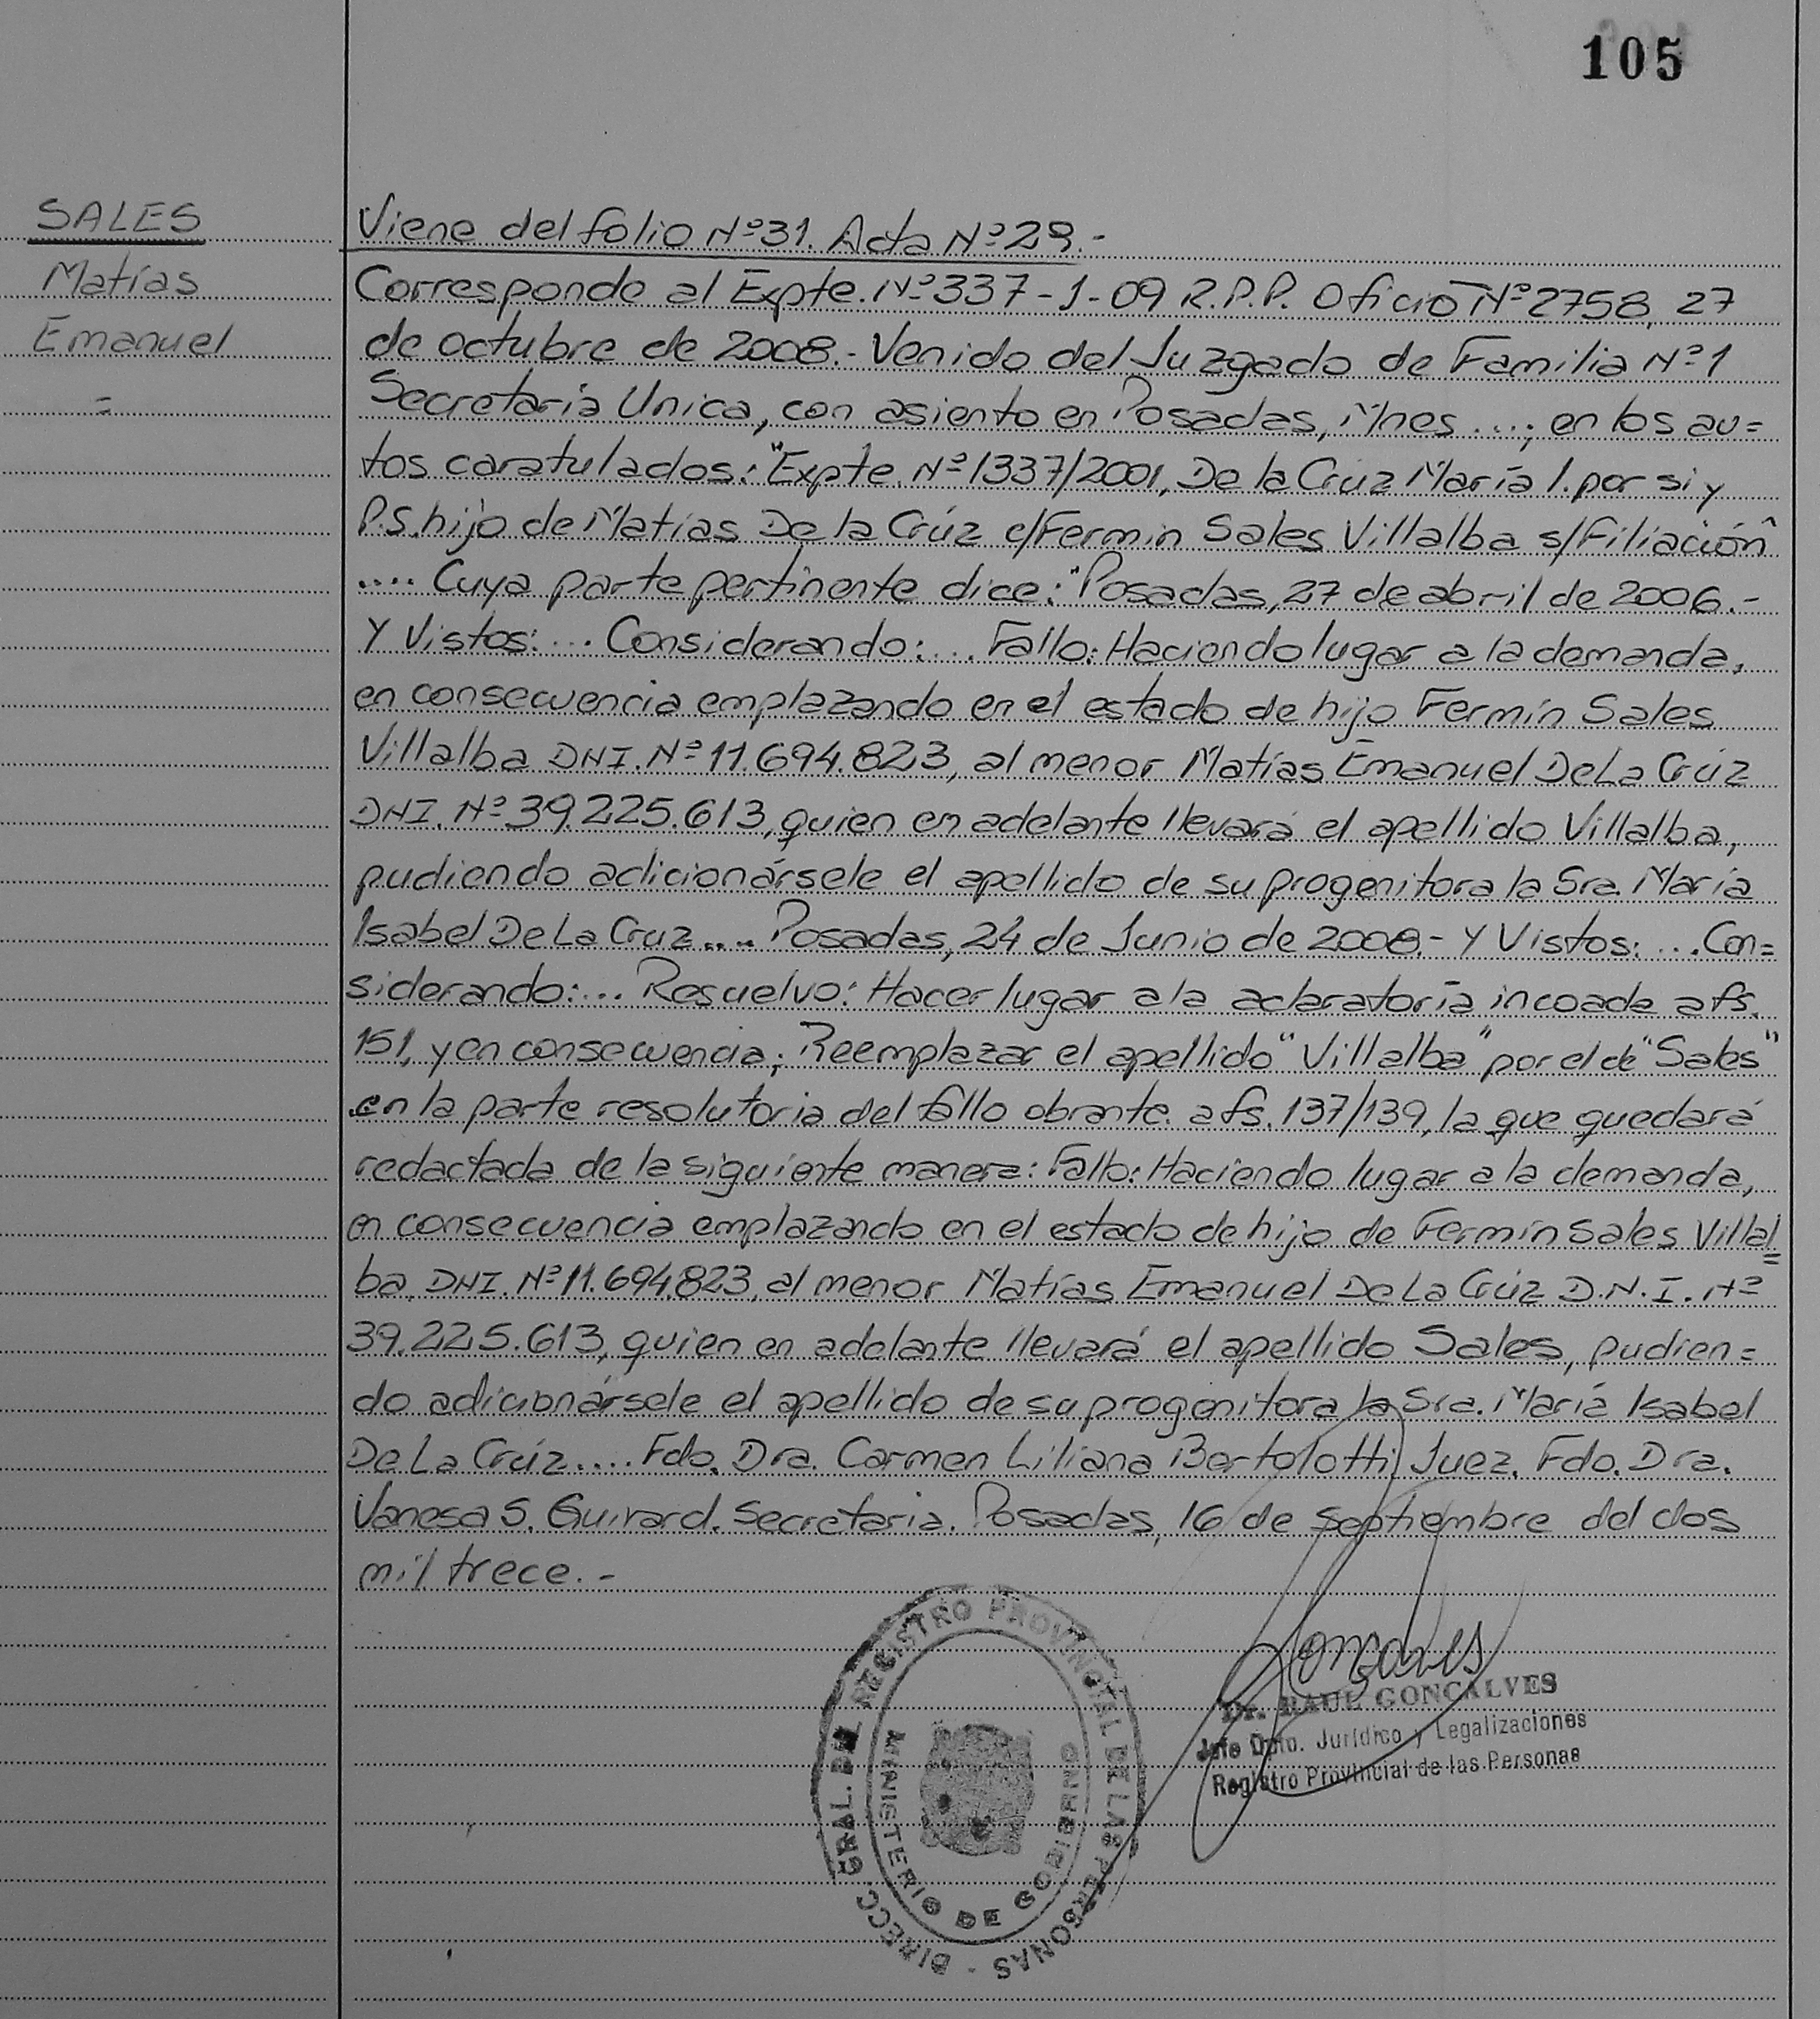 105
SALES
Matías
Emanuel
=
Viene del folio Nº31. Acta Nº29.-
Corresponde al Expte. Nº337-1-09 R.P.P. Oficio Nº2758, 27
de octubre de 2008.- Venido del Juzgado de Familia Nº1
Secretaría Unica, con asiento en Posadas, Mnes....; en los au=
tos caratulados: "Expte. Nº1337/2001, De la Crúz María I. por si y
P.S. hijo de Matías De la Crúz c/Fermin Sales Villalba s/Filiación"
.... Cuya parte pertinente dice: "Posadas, 27 de abril de 2006.-
Y Vistos:... Considerando:... Fallo: Haciendo lugar a la demanda,
en consecuencia emplazando en el estado de hijo Fermín Sales
Villalba DNI. Nº11.694.823, al menor Matías Emanuel De La Crúz
DNI. Nº39.225.613, quien en adelante llevará el apellido Villalba,
pudiendo adicionársele el apellido de su progenitora la Sra. María
Isabel De La Cruz.... Posadas, 24 de Junio de 2008.- Y Vistos:... Con=
siderando:... Resuelvo: Hacer lugar a la aclaratoria incoada a fs.
151, y en consecuencia; Reemplazar el apellido "Villalba" por el de "Sales"
en la parte resolutoria del fallo obrante a fs. 137/139, la que quedará
redactada de la siguiente manera: Fallo: Haciendo lugar a la demanda,
en consecuencia emplazando en el estado de hijo de Fermín Sales Villal=
ba, DNI. Nº11.694.823, al menor Matías Emanuel De La Crúz D.N.I. Nº
39.225.613, quien en adelante llevará el apellido Sales, pudien=
do adicionársele el apellido de su progenitora la Sra. María Isabel
De La Crúz.... Fdo. Dra. Carmen Liliana Bertolotti, Juez. Fdo. Dra.
Vanesa S. Guirard. Secretaria. Posadas, 16 de Septiembre del dos
mil trece.-
DIRECC. GRAL. DEL REGISTRO PROVINCIAL DE LAS PERSONAS -
MINISTERIO DE GOBIERNO
Dr. RAUL GONCALVES
Jefe Dpto. Jurídico y Legalizaciones
Registro Provincial de las Personas